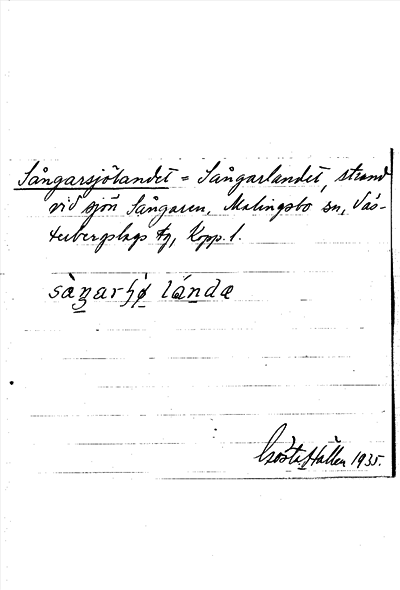 Sångarsjölandet = Sångarlandet, strand
vid sjön Sångaren, Malingsbo sn, Väs-
terbergslags tg, Kopp. l.
Gösta Hallén 1935.